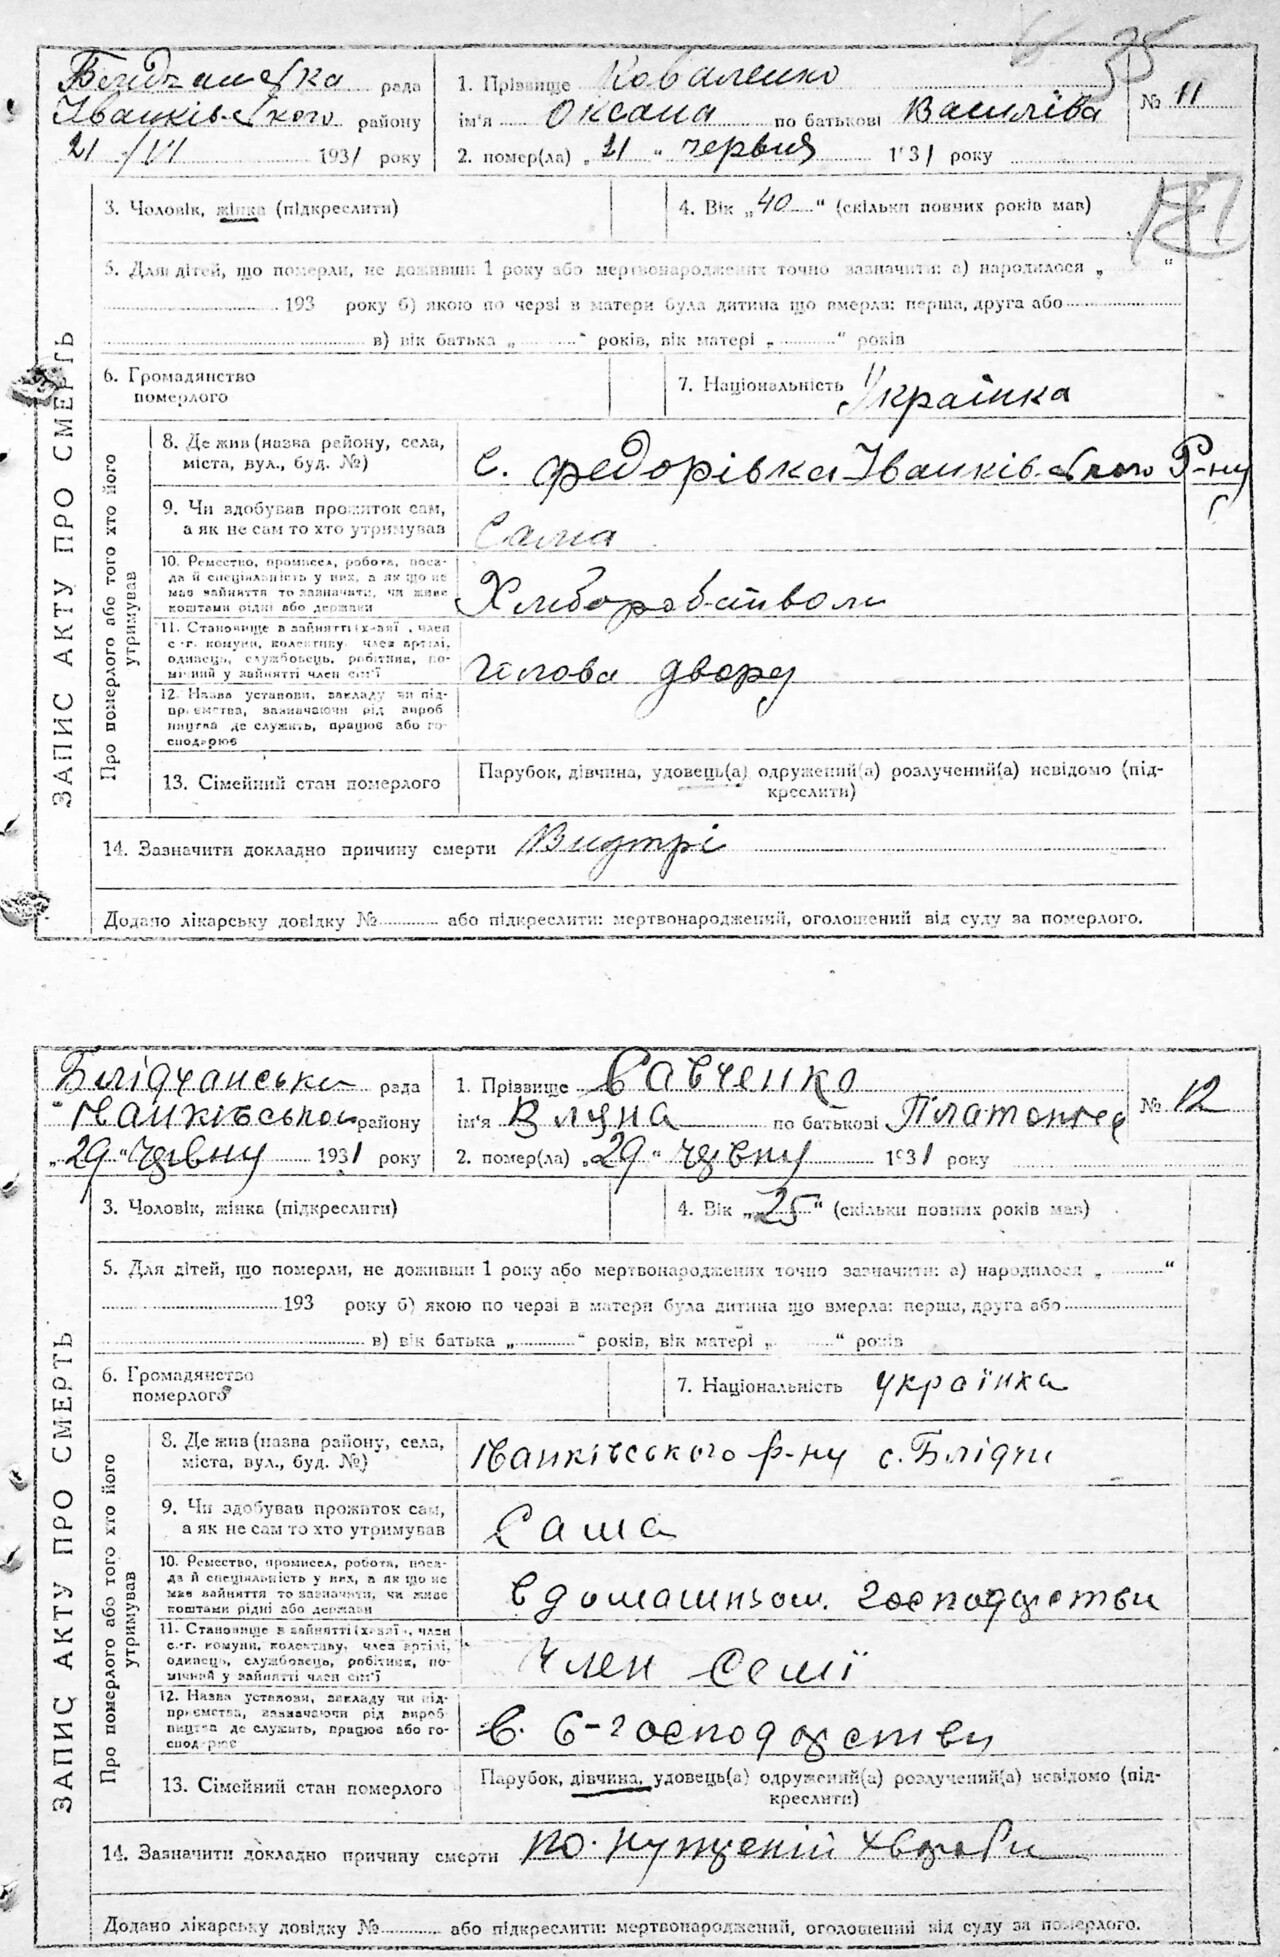 35
рада
Іванківського району
21/VI 1931 року
1. Прізвище Коваленко
ім'я Оксана по батькові Василівна
№ 11
2. помер(ла) „21" червня 1931 року
3. Чоловік, жінка (підкреслити)
4. Вік „40" (скільки повних років мав)
5. Для дітей, що померли, не доживши 1 року або мертвонароджених точно зазначити: а) народилося „ "
193 року б) якою по черзі в матери була дитина що вмерла: перша, друга або
в) вік батька „ " років, вік матері „ " років
6. Громадянство
померлого
7. Національність Українка
ЗАПИС АКТУ ПРО СМЕРТЬ
Про померлого або того хто його
утримував
8. Де жив (назва району, села,
міста, вул., буд. №)
с. Федорівка Іванківського Р-ну
9. Чи здобував прожиток сам,
а як не сам то хто утримував
Сама
10. Ремество, промисел, робота, поса-
да й спеціяльність у них, а як що не
мав зайняття то зазначити, чи живе
коштами рідні або держави
Хліборобством
11. Становище в зайнятті (х-вяї, член
с.-г. комуни, колективу, член артілі,
одинець, службовець, робітник, по-
мічний у зайнятті член сім'ї
голова двору
12. Назва установи, закладу чи під-
приємства, зазначаючи рід вироб
ництва де служить, працює або го-
сподарює
13. Сімейний стан померлого
Парубок, дівчина, удовець(а) одружений(а) розлучений(а) невідомо (під-
креслити)
14. Зазначити докладно причину смерти
Додано лікарську довідку № або підкреслити: мертвонароджений, оголошений від суду за померлого.
Блідчанська рада
Іванківського району
„29" червня 1931 року
1. Прізвище Савченко
ім'я по батькові
№ 12
2. помер(ла) „29" червня 1931 року
3. Чоловік, жінка (підкреслити)
4. Вік „25" (скільки повних років мав)
5. Для дітей, що померли, не доживши 1 року або мертвонароджених точно зазначити: а) народилося „ "
193 року б) якою по черзі в матери була дитина що вмерла: перша, друга або
в) вік батька „ " років, вік матері „ " років
6. Громадянство
померлого
7. Національність українка
ЗАПИС АКТУ ПРО СМЕРТЬ
Про померлого або того хто його
утримував
8. Де жив (назва району, села,
міста, вул., буд. №)
Іванківського р-ну с. Блідчи
9. Чи здобував прожиток сам,
а як не сам то хто утримував
Сама
10. Ремество, промисел, робота, поса-
да й спеціяльність у них, а як що не
мав зайняття то зазначити, чи живе
коштами рідні або держави
в домашньом господарстви
11. Становище в зайнятті (х-вяї, член
с.-г. комуни, колективу, член артілі,
одинець, службовець, робітник, по-
мічний у зайнятті член сім'ї
Член семї
12. Назва установи, закладу чи під-
приємства, зазначаючи рід вироб-
ництва де служить, працює або го-
сподарює
в с-господарстви
13. Сімейний стан померлого
Парубок, дівчина, удовець(а) одружений(а) розлучений(а) невідомо (під-
креслити)
14. Зазначити докладно причину смерти по хвороби
Додано лікарську довідку № або підкреслити: мертвонароджений, оголошений від суду за померлого.